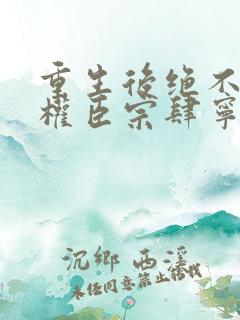 重生後绝不
權臣宗肆寧
沉鄉 西溪
未经同意禁止转载